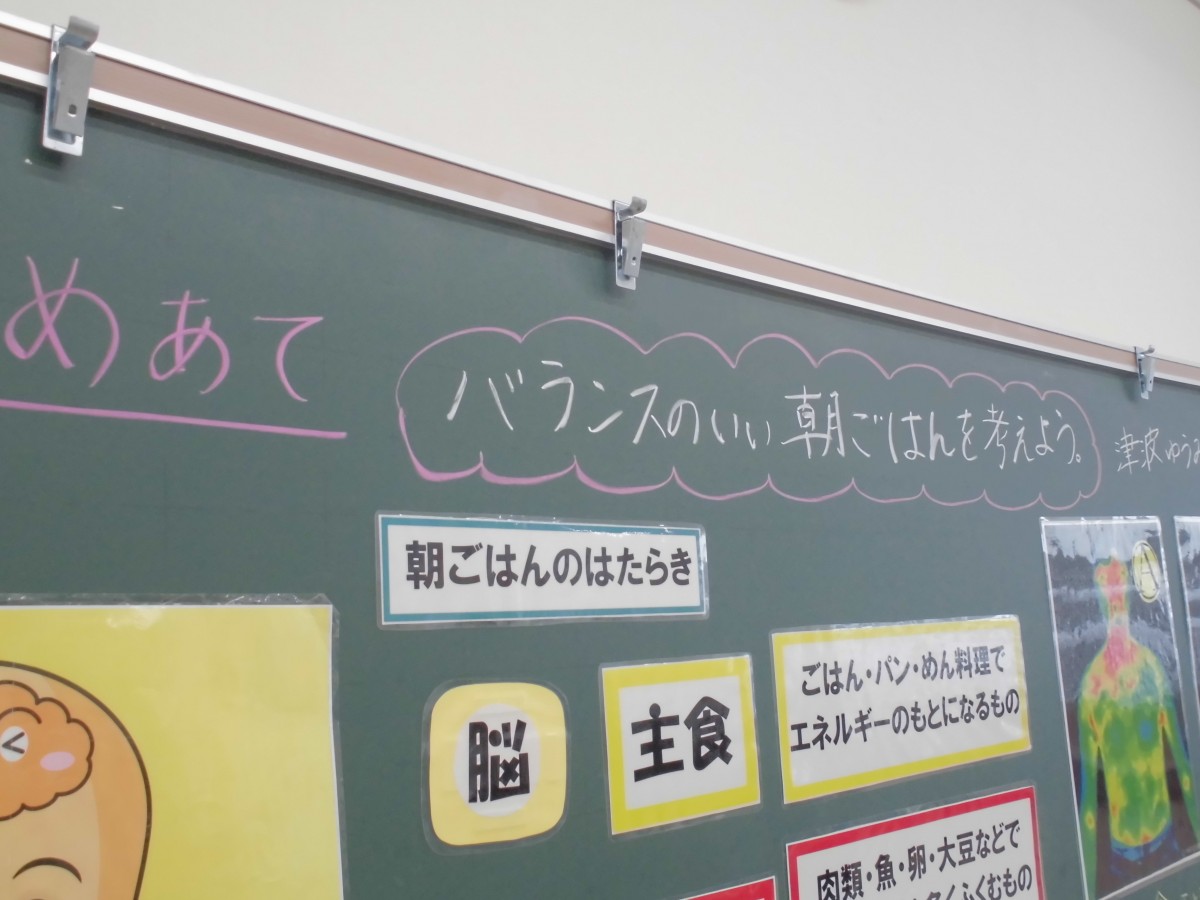 めあて
バランスのいい朝ごはんを考えよう。
津波ゆう
朝ごはんのはたらき
A
脳
主食
ごはん・パン・めん料理で
エネルギーのもとになるもの
肉類・魚・卵・大豆などで
くふくむもの